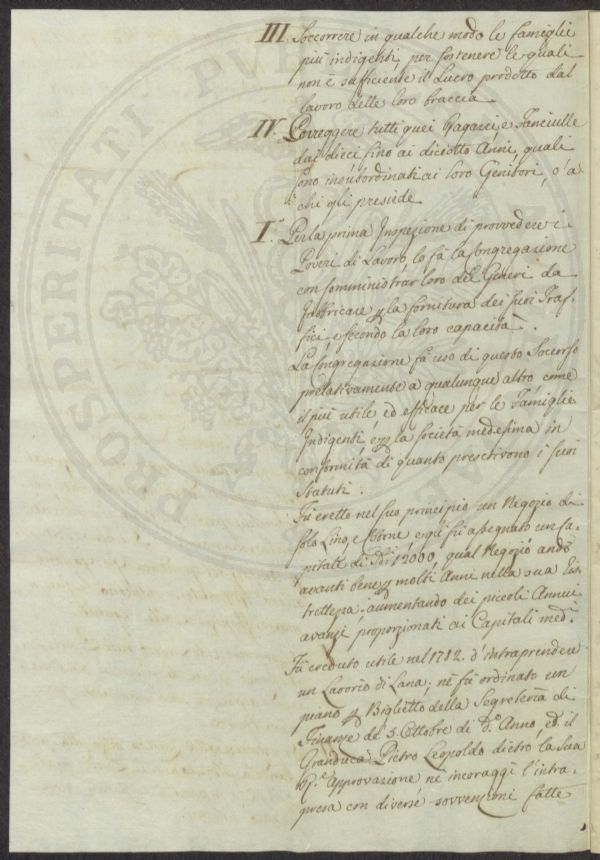 III. Soccorrere in qualche modo le famiglie
più indigenti, per sostenere le quali
non è sufficiente il Lucro prodotto dal
lavoro delle loro braccia
IV. Correggere tutti quei Ragazzi, e Fanciulle
dai dieci fino ai diciotto Anni, quali
sono insubordinati ai loro Genitori, o' a
chi gli presiede
I.ª Per la prima Inspezione di provvedere i
Poveri di Lavoro lo fà la Congregazione
con somministrar loro del Generi da
Fabbricare p la fornitura dei suoi Traf-
fici, e secondo la loro capacità.
La Congregazione fa uso di questo Soccorso
prelativamente a qualunque altro come
il più utile, ed efficace per le Famiglie
Indigenti, e p la Società medesima in
conformità di quanto prescrivono i suoi
Statuti.
Fù eretto nel suo principio un Negozio di
solo Lino, e e gli fù assegnato un Ca-
pitale di 12000, qual Negozio andò
avanti bene p molti Anni nella sua Ris-
trettezza, aumentando dei piccoli Annui
avanzi proporzionati ai Capitali med.i
Fù creduto utile nel 1782. d'intraprendere
un Lavorio di Lana; nè fù ordinato un
piano p Biglietto della Segreteria di
Finanze de' 5. Ottobre di d.º Anno, ed il
Granduca Pietro Leopoldo dietro la Sua
Approvazione nè incoraggì l'intra-
presa con diverse sovvenzioni fatte